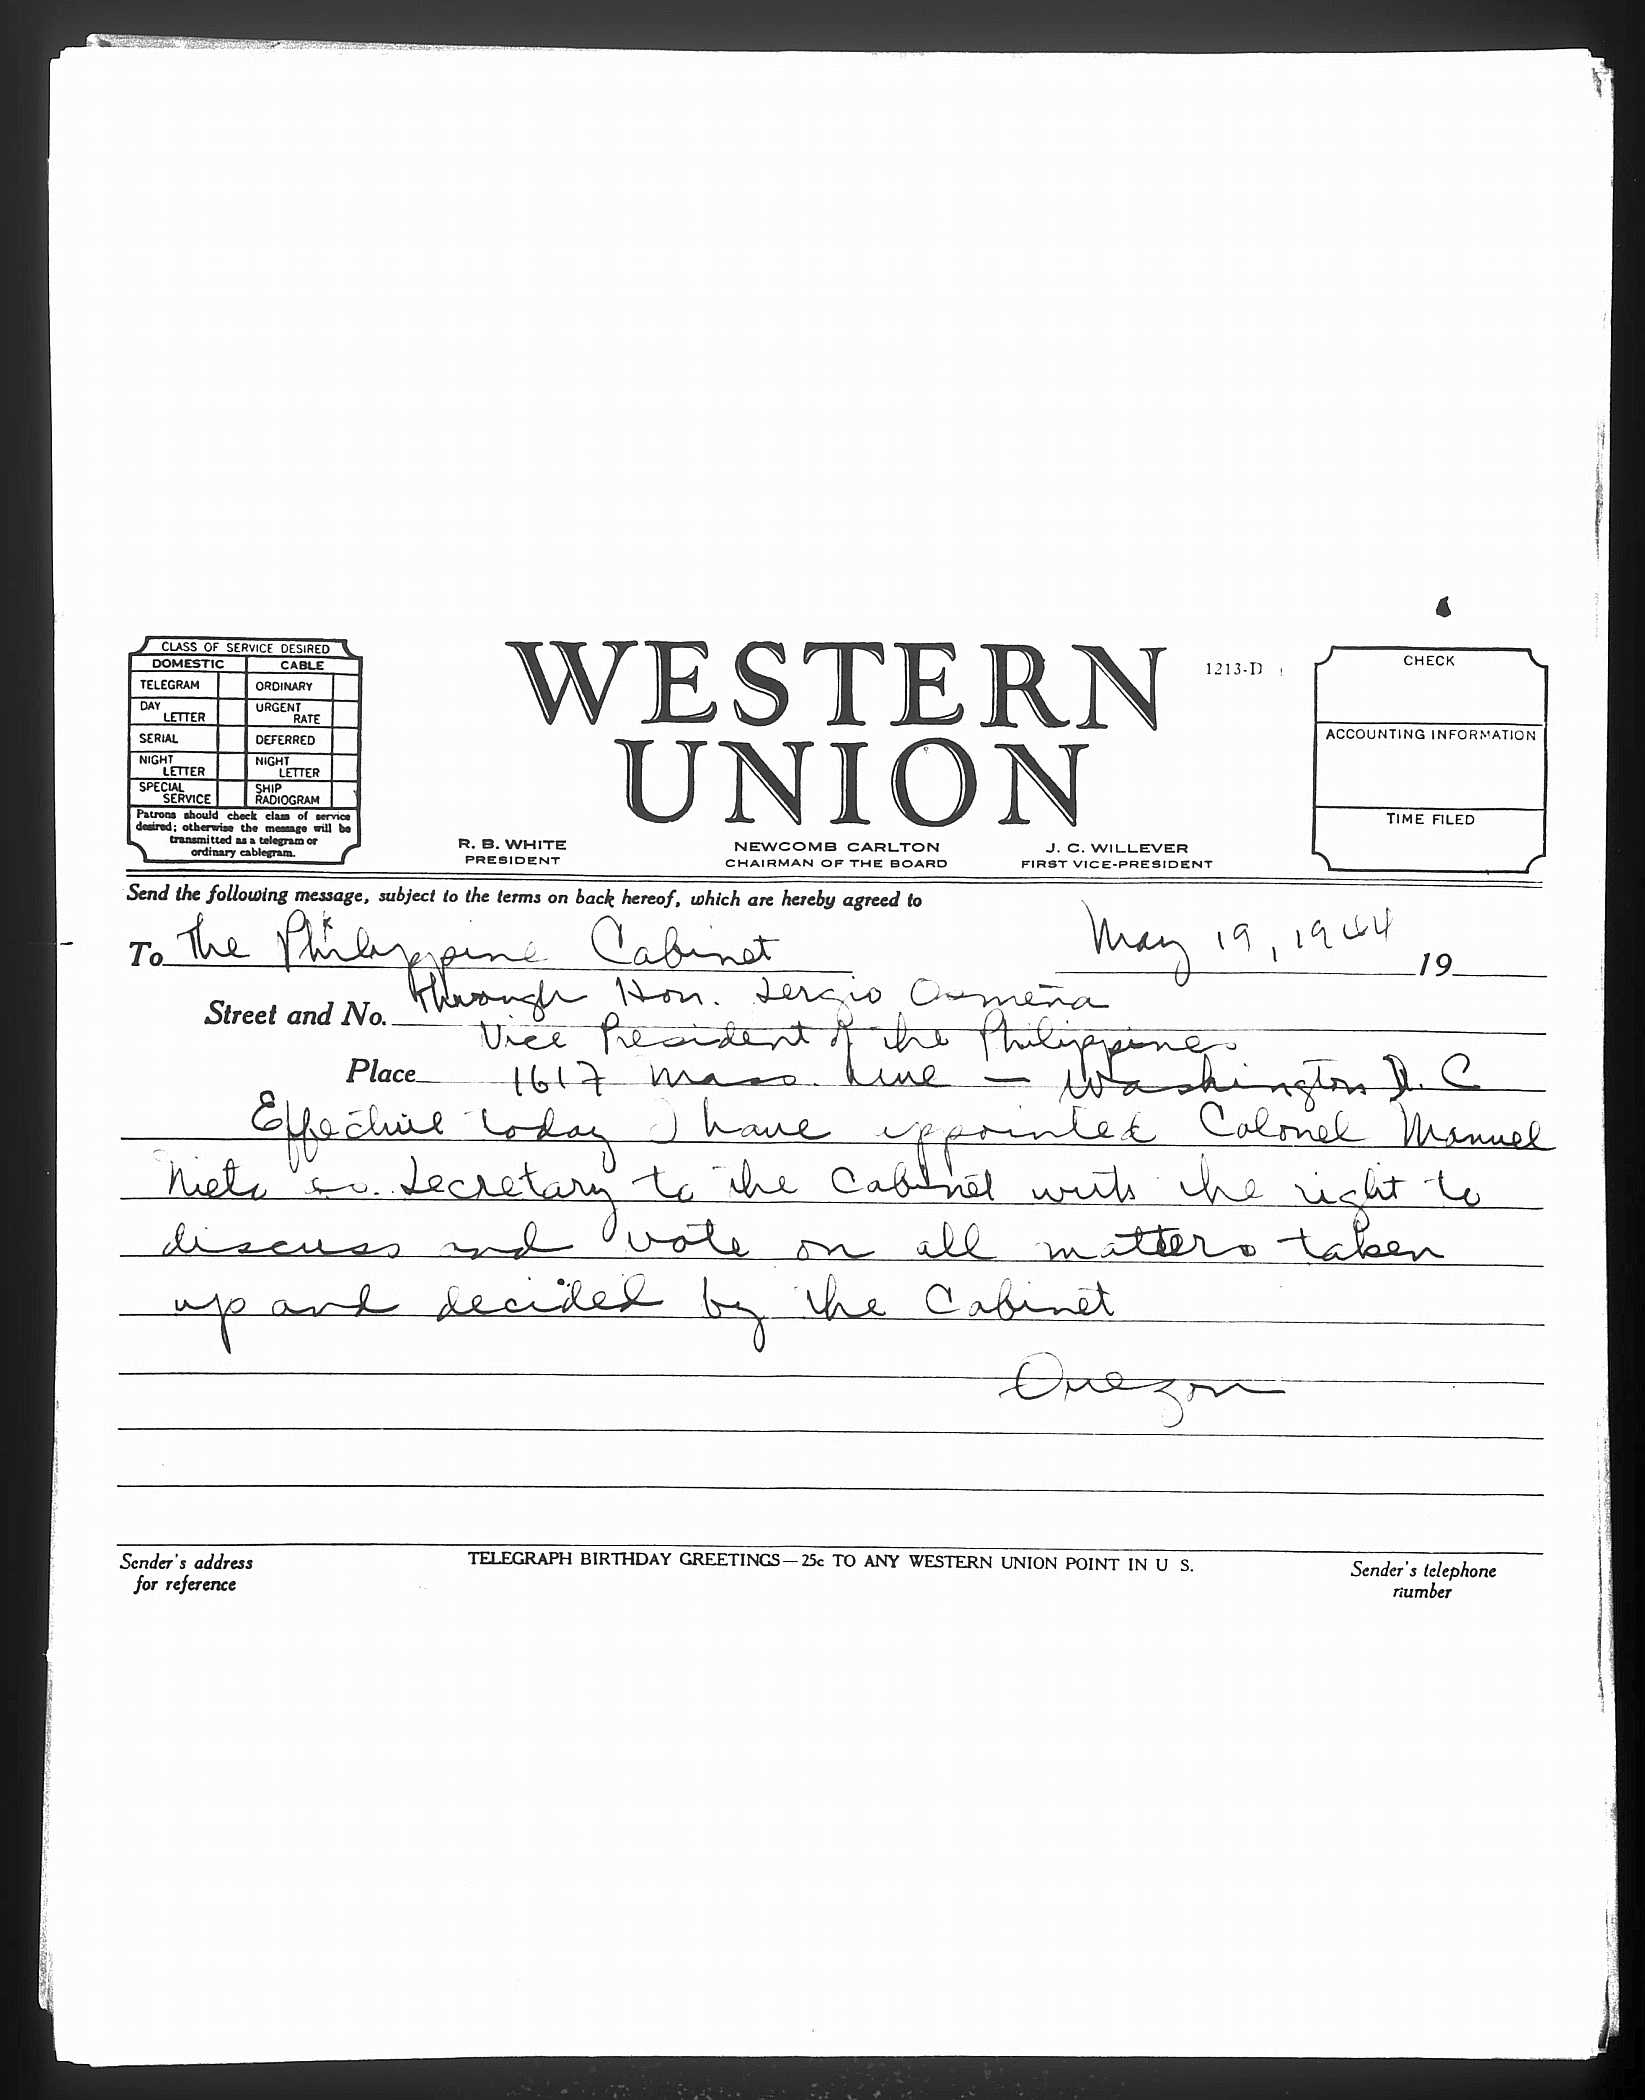 CLASS OF SERVICE DESIRED
DOMESTIC CABLE
TELEGRAM ORDINARY
DAY LETTER URGENT RATE
SERIAL DEFERRED
NIGHT LETTER NIGHT LETTER
SPECIAL SERVICE SHIP RADIOGRAM
Patrons should check class of service
desired; otherwise the message will be
transmitted as a telegram or
ordinary cablegram.
WESTERN
UNION
1213-D
R. B. WHITE
PRESIDENT
NEWCOMB CARLTON
CHAIRMAN OF THE BOARD
J. C. WILLEVER
FIRST VICE-PRESIDENT
CHECK
ACCOUNTING INFORMATION
TIME FILED
Send the following message, subject to the terms on back hereof, which are hereby agreed to
To The Philippine Cabinet May 19, 1944 19
Street and No. Through Hon. Sergio Osmeña
Vice President of the Philippines
Place 1617 Mass. Ave — Washington D. C
Effective today I have appointed Colonel Manuel
Nieto as Secretary to the Cabinet with the right to
discuss and vote on all matters taken
up and decided by the Cabinet
Quezon
Sender's address
for reference
TELEGRAPH BIRTHDAY GREETINGS—25c TO ANY WESTERN UNION POINT IN U S.
Sender's telephone
number